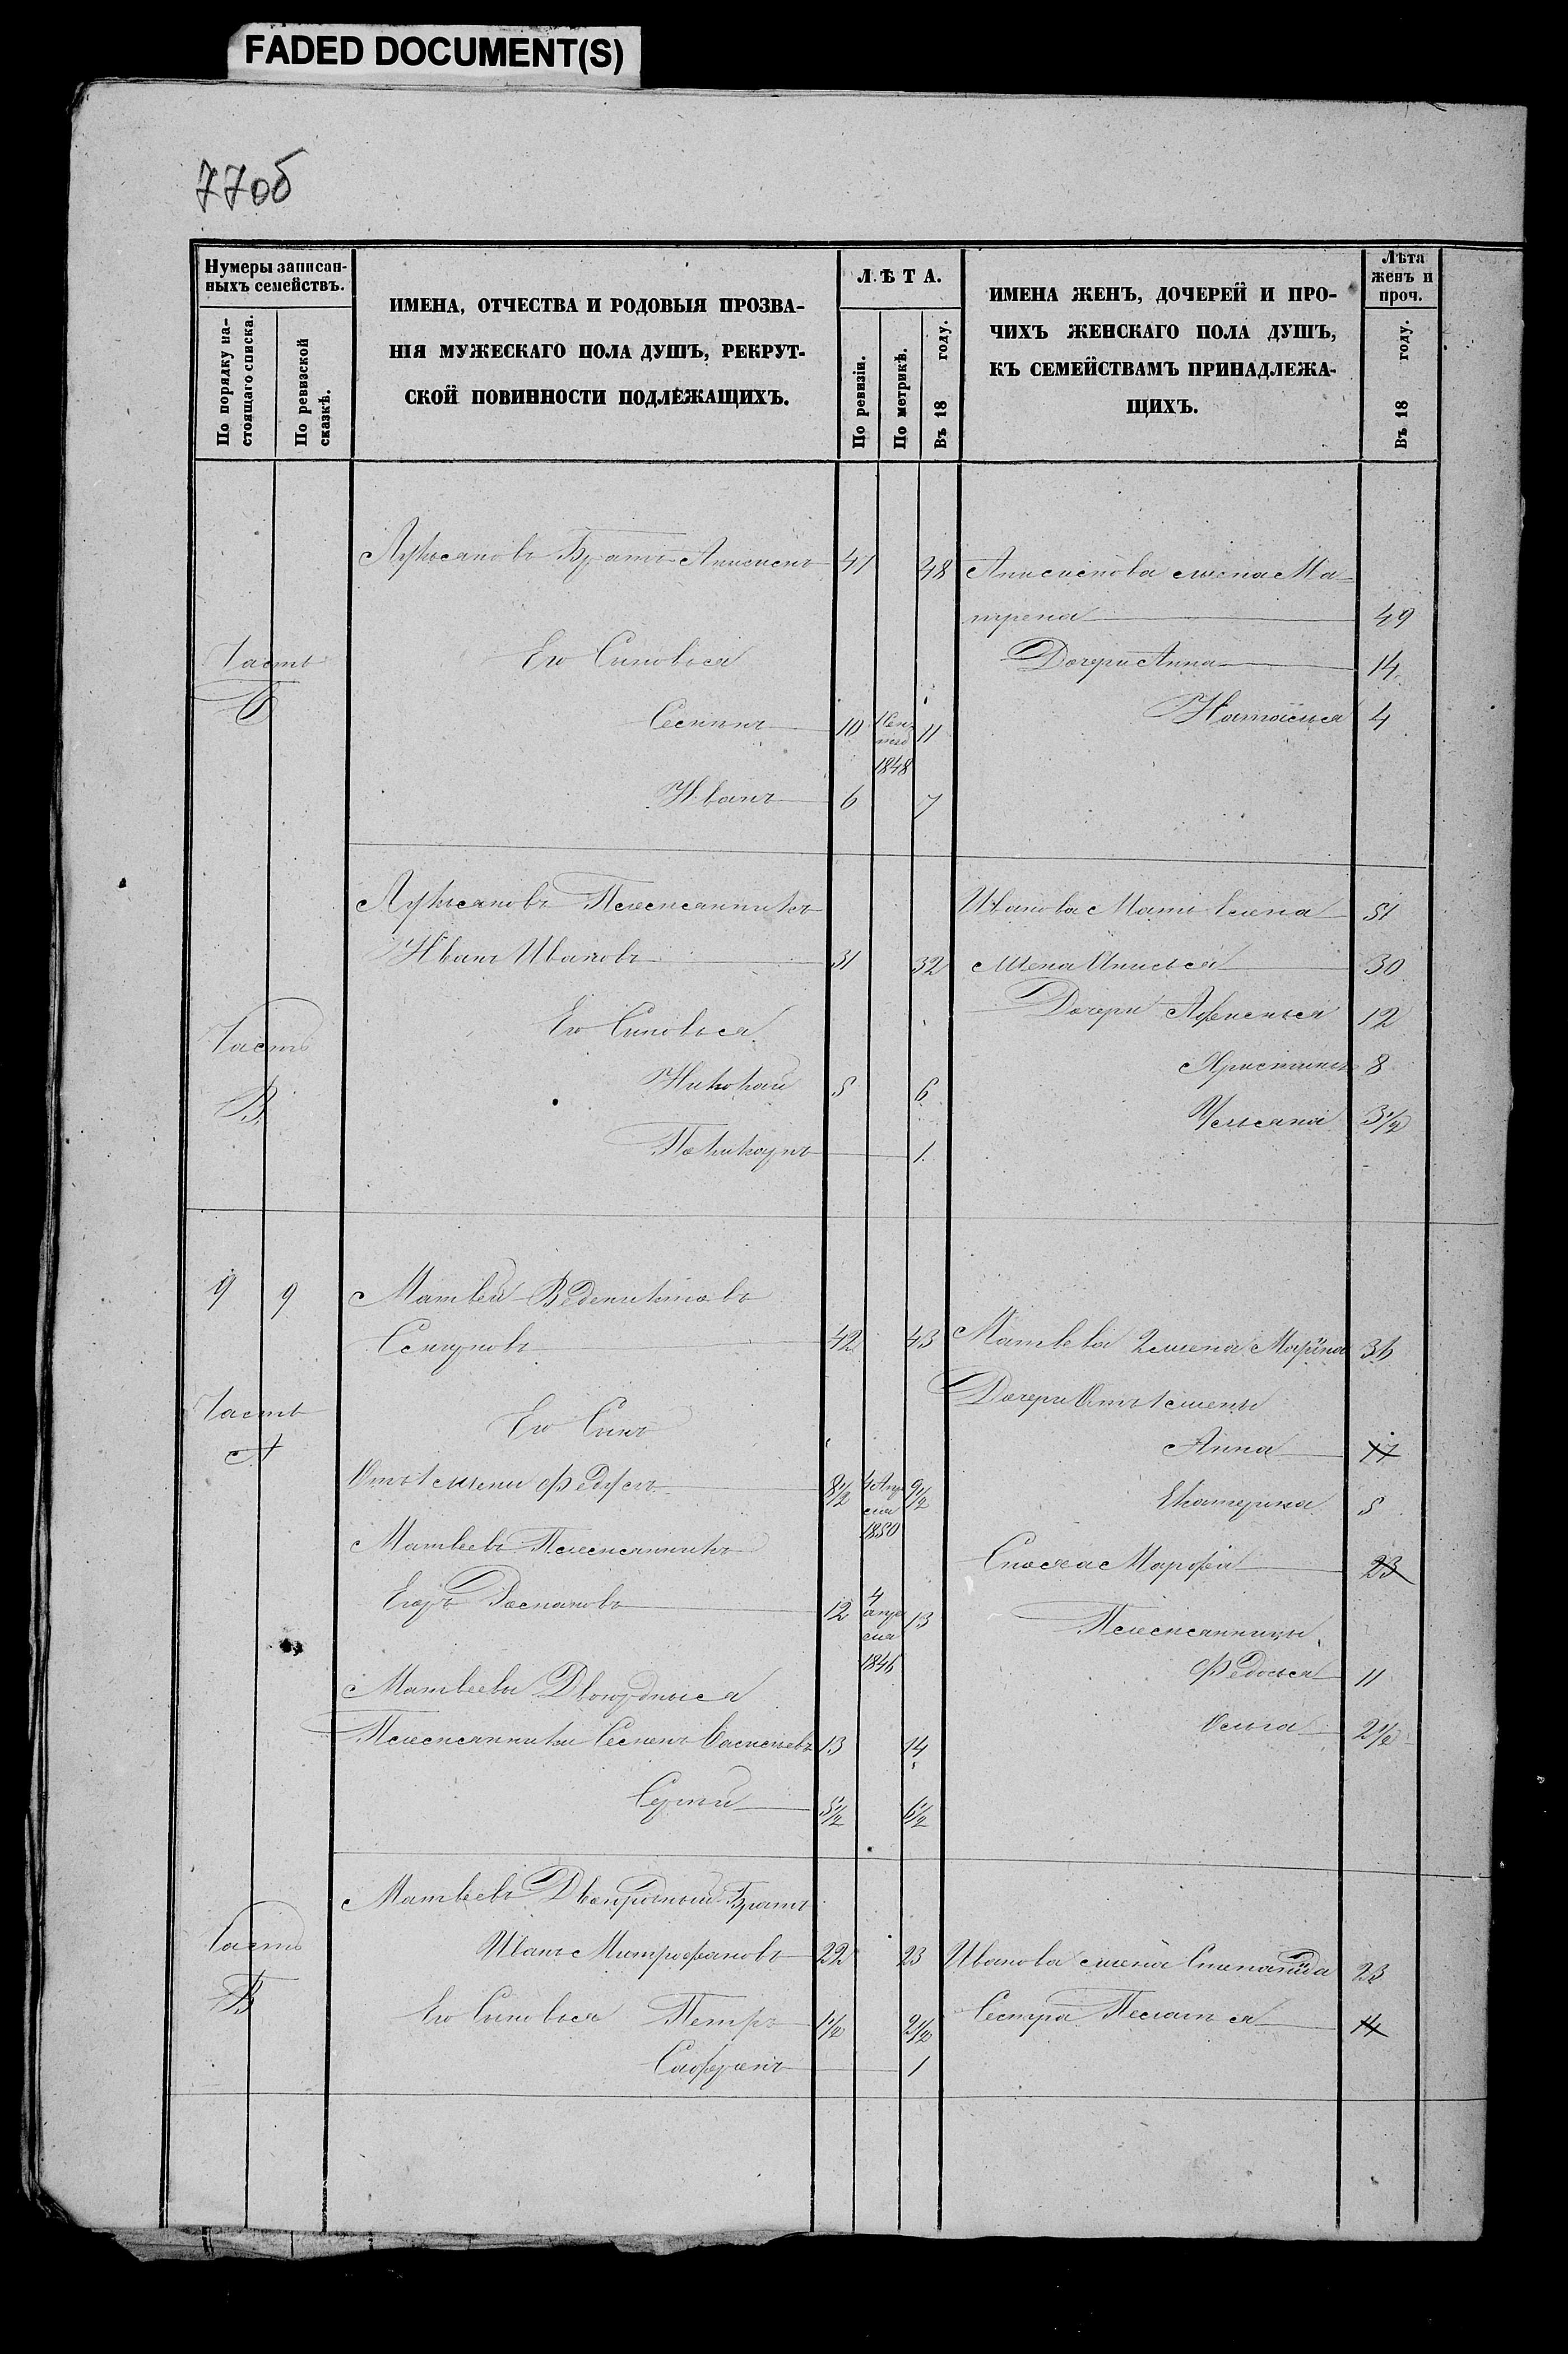 FADED DOCUMENT(S)
77об
Нумеры записан-
ныхъ семействъ.
По порядку на-
стоящаго списка.
По ревизской
сказкѣ.
ИМЕНА, ОТЧЕСТВА И РОДОВЫЯ ПРОЗВА-
НІЯ МУЖЕСКАГО ПОЛА ДУШЪ, РЕКРУТ-
СКОЙ ПОВИННОСТИ ПОДЛЕЖАЩИХЪ.
ЛѢТА.
По ревизіи.
По метрикѣ.
Въ 18 году.
ИМЕНА ЖЕНЪ, ДОЧЕРЕЙ И ПРО-
ЧИХЪ ЖЕНСКАГО ПОЛА ДУШЪ,
КЪ СЕМЕЙСТВАМЪ ПРИНАДЛЕЖА-
ЩИХЪ.
Лѣта
женъ и
проч.
Въ 18 году.
Лукьяновъ Братъ Анисимъ 47 48 Анисимова жена Ма-
трена 49
Часть Его Сыновья Дочери Анна 14
Б
10 11 Наталья 4
1848
Иванъ 6 7
Лукьяновъ Племянникъ Иванова Мать Елена 51
Иванъ Ивановъ 31 32 жена Анисья 30
Его Сыновья Дочери Афимья 12
Часть
Николай 5 6 8
В.
Ульяна 3½
Поликарпъ 1
9 9 Матвей Веденихтовъ
42 43 Матвева 2 жена Марина 36
Дочери отъ 1 жены
Часть Его Сынъ
А Анна 11
Отъ 1 жены Федоръ 8½ 4 Апр
еля
1850 9½ Екатерина 5
Матвеевъ Племянникъ
Сноха Марфа 23
Егоръ 12 4
апр
еля
1846 13 Племянницы
Федосья 11
Матвеевы Двоюродныя
Племянники Семенъ 13 14 Ольга 2½
Сергей 5½ 6½
Матвеевъ Двоюродный Братъ
Часть Иванъ Митрофановъ 22 23 Иванова жена Степанида 23
Б Его Сыновья Петръ 1½ 2½ Сестра Пелагея 14
Сафронъ 1